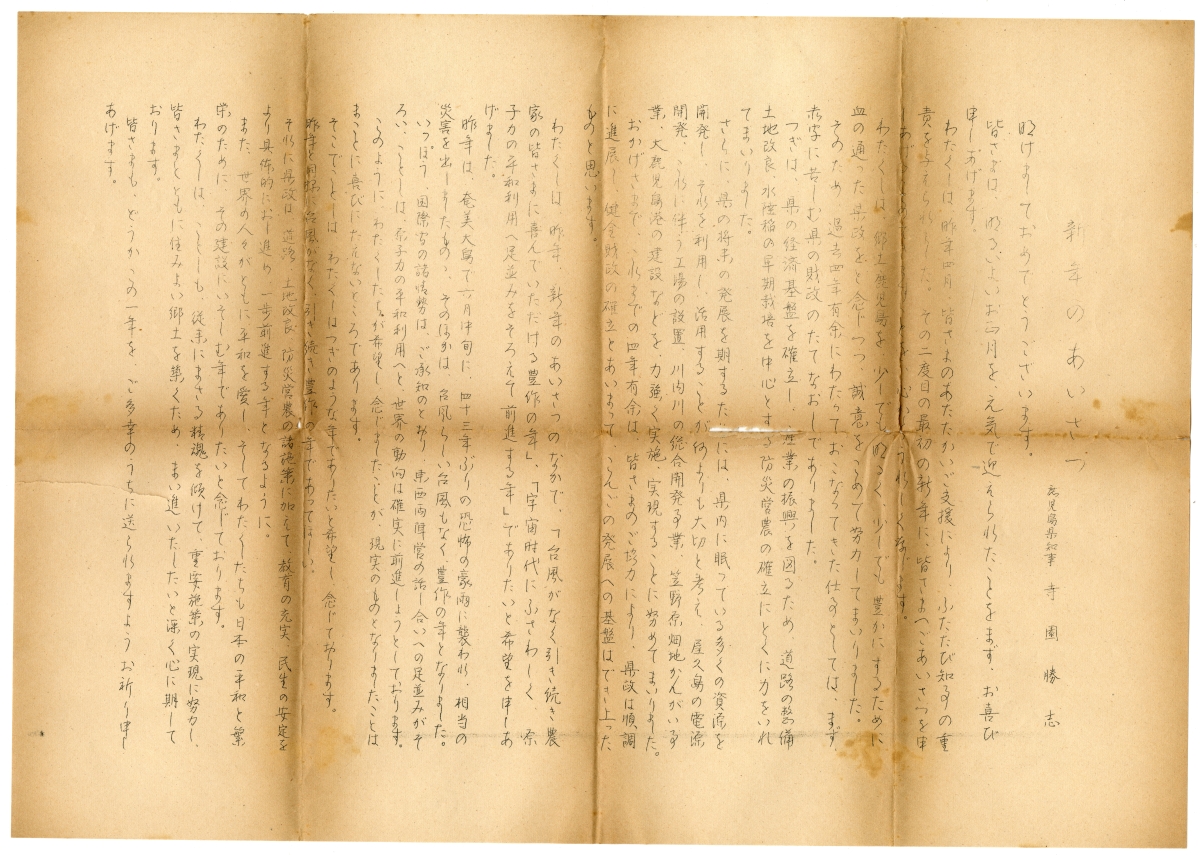 新年のあいさつ
鹿児島県知事 寺園勝志
明けましておめでとうございます。
皆さまは、明るいよいお正月を、元気で迎えられたことをまず、お喜び
申しあげます。
わたくしは昨年四月、皆さまのあたたかいご支援により、ふたたび知事の重
責を与えられました。その二度目の最初の新年に、皆さまへごあいさつを申
しあげることを、心からうれしく存じます。
わたくしは、郷土鹿児島を、少しでも明るく、少しでも豊かにするために
血の通った県政をと念じつつ、誠意をこめて努力してまいりました。
そのため、過去四年有余にわたっておこなってきた仕事としては、まず、
赤字に苦しむ県の財政のたてなおしでありました。
つぎは、県の経済基盤を確立し、産業の振興を図るため、道路の整備
土地改良、水陸稲の早期栽培を中心とする防災営農の確立にとくに力をいれ
てまいりました。
さらに、県の将来の発展を期するためには、県内に眠っている多くの資源を
開発し、それを利用し、活用することが何よりも大切と考え、屋久島の電源
開発、これに伴う工場の設置、川内川の総合開発事業、笠野原畑地かんがい事
業、大鹿児島港の建設などを、力強く実施、実現することに努めてまいりました。
おかげさまで、これまでの四年有余は、皆さまのご協力により、県政は順調
に進展し、健全財政の確立とあいまって、こんごの発展への基盤はでき上った
ものと思います。
わたくしは、昨年、新年のあいさつのなかで、「台風がなく引き続き農
家の皆さまに喜んでいただける豊作の年」、「宇宙時代にふさわしく、原
子力の平和利用へ足並みをそろえて前進する年」でありたいと希望を申しあ
げました。
昨年は、奄美大島で六月中旬に、四十三年ぶりの恐怖の豪雨に襲われ、相当の
災害を出しましたものゝ、そのほかは、台風らしい台風もなく、豊作の年となりました。
いっぽう、国際間の諸情勢は、ご承知のとおり、東西両陣営の話し合いへの足並みがそ
ろい、ことしは、原子力の平和利用へと、世界の動向は確実に前進しようとしております。
このように、わたくしたちが希望し、念じましたことが、現実のものとなりましたことは
まことに喜びにたえないところであります。
そこでことしは、わたくしはつぎのような年でありたいと希望し、念じております。
昨年と同様に台風がなく、引き続き豊作の年であってほしい。
それに県政は、道路、土地改良、防災営農の諸施策に加えて、教育の充実、民生の安定を
より具体的におし進め、一歩前進する年となるように。
また、世界の人々がともに平和を愛し、そしてわたくしたちも日本の平和と繁
栄のために、その建設にいそしむ年でありたいと念じております。
わたくしは、ことしも、従来にまさる精魂を傾けて、重要施策の実現に努力し、
皆さまとともに住みよい郷土を築くため、まい進いたしたいと深く心に期して
おります。
皆さまも、どうかこの一年を、ご多幸のうちに送られますようお祈り申し
あげます。